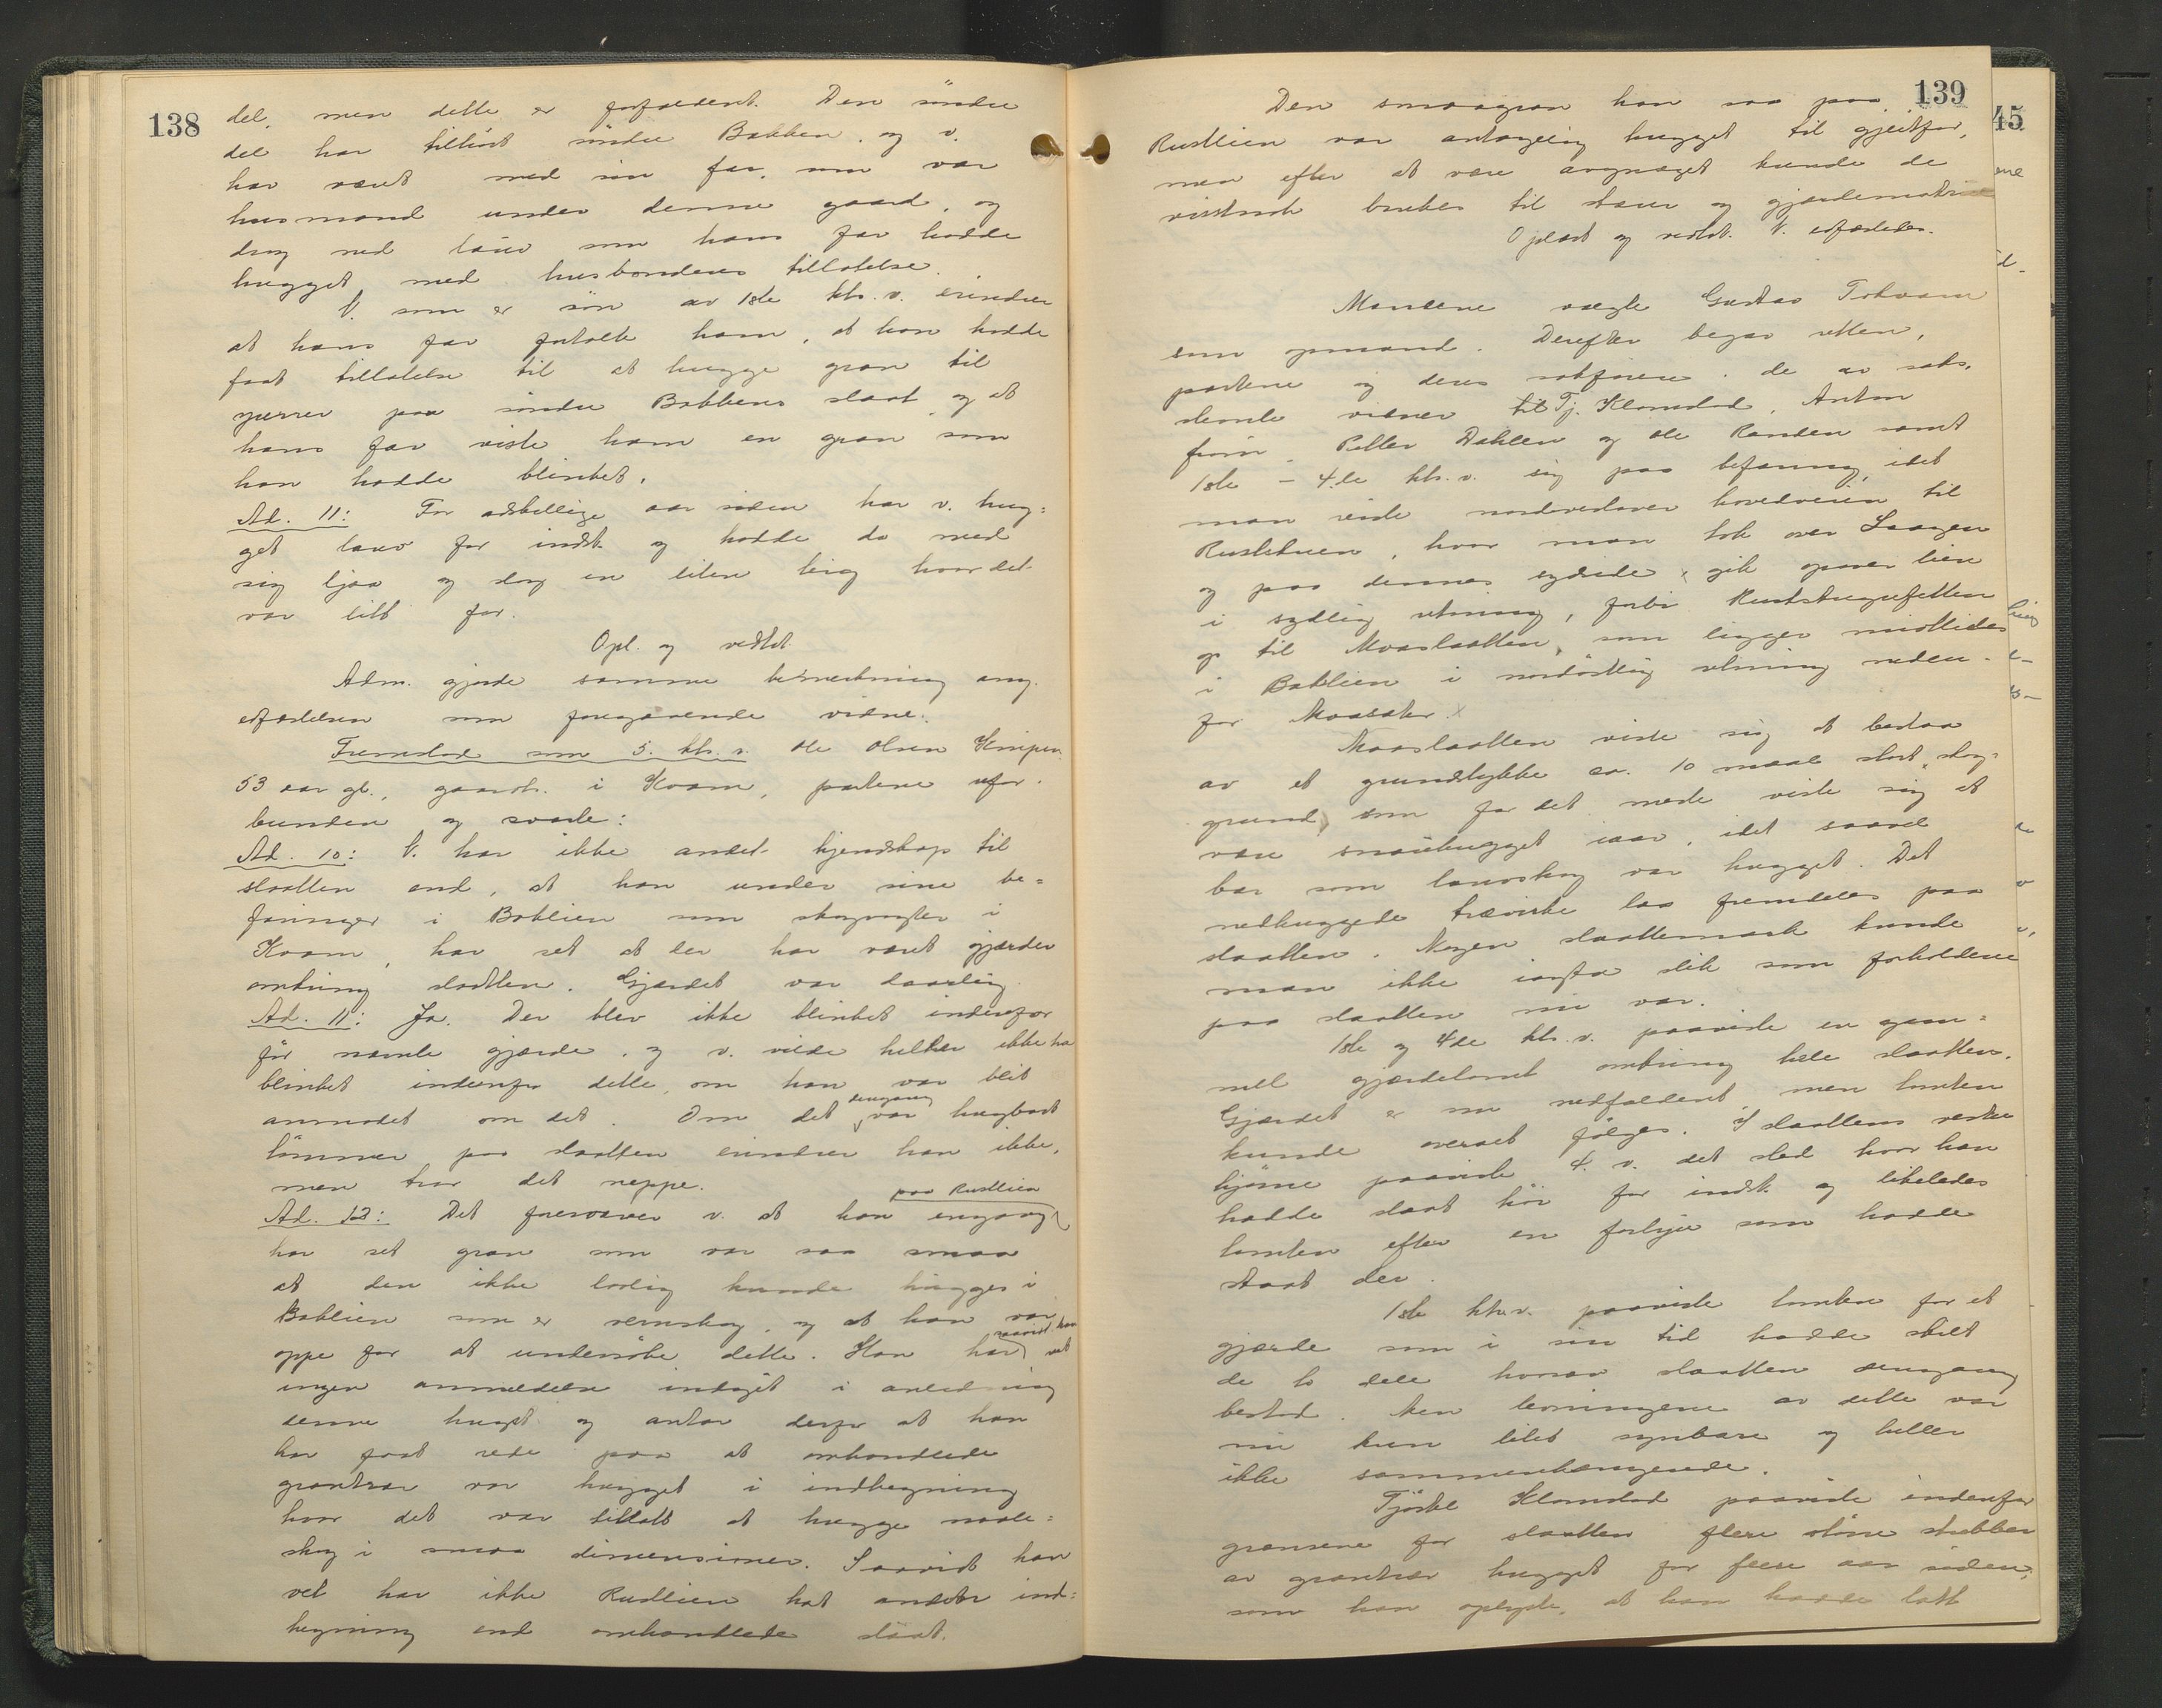 138
del, men dette er forfaldent. Den söndre
del har tilhört söndre Bakken, og v.
har været med sin far, som var
husmand under denne gaard, og
drog ned lauv som hans far hadde
hugget med husbonderes tillatelse.
V. som er sön av 1ste hhv. v. erindrer
at hans far fortalte ham, at han hadde
faat tillatelse til at hugge gran til
paa söndre Bakkens slaat, og at
hans far viste ham en gran som
han hadde blinket.
Ad. 11: For adskillige aar siden har v. hug=
get lauv for indst. og hadde da med
sig ljaa og slog en liten teig hvor det
var litt for.
Opl. og vedtat.
Adm. gjorde samme bemerkning ang.
edfæstelsen som foregaaende vidne.
Fremstod som 5. hhv. v. Ole Olsen Knipen
53 aar gl., gaardbr. i Kvam, partene ufor-
bunden og svarte:
Ad. 10: V. har ikke andet kjendskap til
slaatten end, at han under sine be=
faringer i Baklien som skogvogter i
Kvam, har set at der har været gjærder
omkring slaatten. Gjærdet var daarlig.
Ad. 11: Ja. Der blev ikke blinket indenfor
för nævnte gjærde, og v. vilde heller ikke ha
blinket indenfor dette, om han var blit
anmodet om det. Om det dengang var hugbart
tömmer paa slaatten erindrer han ikke,
men tror det neppe.
Ad. 12: Det foresvæver v. at han engang paa Rustlien
har set gran som var saa smaa
at den ikke lovlig kunde hugges i
Baklien som er vernskog, og at han var
oppe for at undersöke dette. Han har, saavidt han vet
ingen anmeldelse indgit i anledning
denne hugst og antar derfor at han
har faat rede paa at omhandlede
grantrær var hugget i indhegning
hvor det var tillatt at hugge naale=
skog i smaa dimensioner. Saavidt han
vet har ikke Rustlien hat anden ind=
hegning end omhandlede slaat.
139
Den smaagran han saa paa
Rustlien var antagelig hugget til gjeitfor,
men efter at være avgnaget kunde de
visstnok brukes til staur og gjærdematriale
Oplæst og vedtat. V. edfæstedes.
Mændene valgte Gustav Tokvam
som opmand. Derefter begav retten,
partene og deres sakförere, de av saks.
stevnte vidner Tj. Klomstad, Anton
Petter Dahlen og Ole Randen samt
1ste - 4.de hhv. v. sig paa befaring, idet
man reiste nordvestover hovedveien til
Ruststuen, hvor man tok over Laagen
og paa dennes sydside gik opover lien
i sydlig retning, forbi
op til Moaslaatten, som ligger midtlides
i Baklien i nordöstlig retning neden-
for Moasæter.
Moaslaatten viste sig at bestaa
av et grundstykke ca. 10 maal stort, skog=
grund, som for det meste viste sig at
være snauhugget iaar, idet saavel
bar som lauvskog var hugget. Det
nedhuggede trævirke laa fremdeles paa
slaatten. Nogen slaattemark kunde
man ikke iagtta slik som forholdene
paa slaatten nu var.
1ste og 4de hhv. v. paaviste en gam=
mel gjærdetomt omkring hele slaatten.
Gjærdet er nu nedfaldent, men tomten
kunde overalt fölges. I slaattens vestre
hjörne paaviste 4. v. det sted hvor han
hadde slaat höi for indst. og likeledes
tomten efter en forhjell som hadde
staat der.
1ste hhv.v. paaviste tomten for et
gjærde som i sin tid hadde skilt
de to dele hvorav slaatten dengang
bestod. Men levningene av dette var
nu kun litet synbare og heller
ikke sammenhængende.
Tjöstel Klomstad paaviste indenfor
grænsene for slaatten flere större stubber
av grantrær hugget for flere aar siden,
som han oplyste, at han hadde latt
45